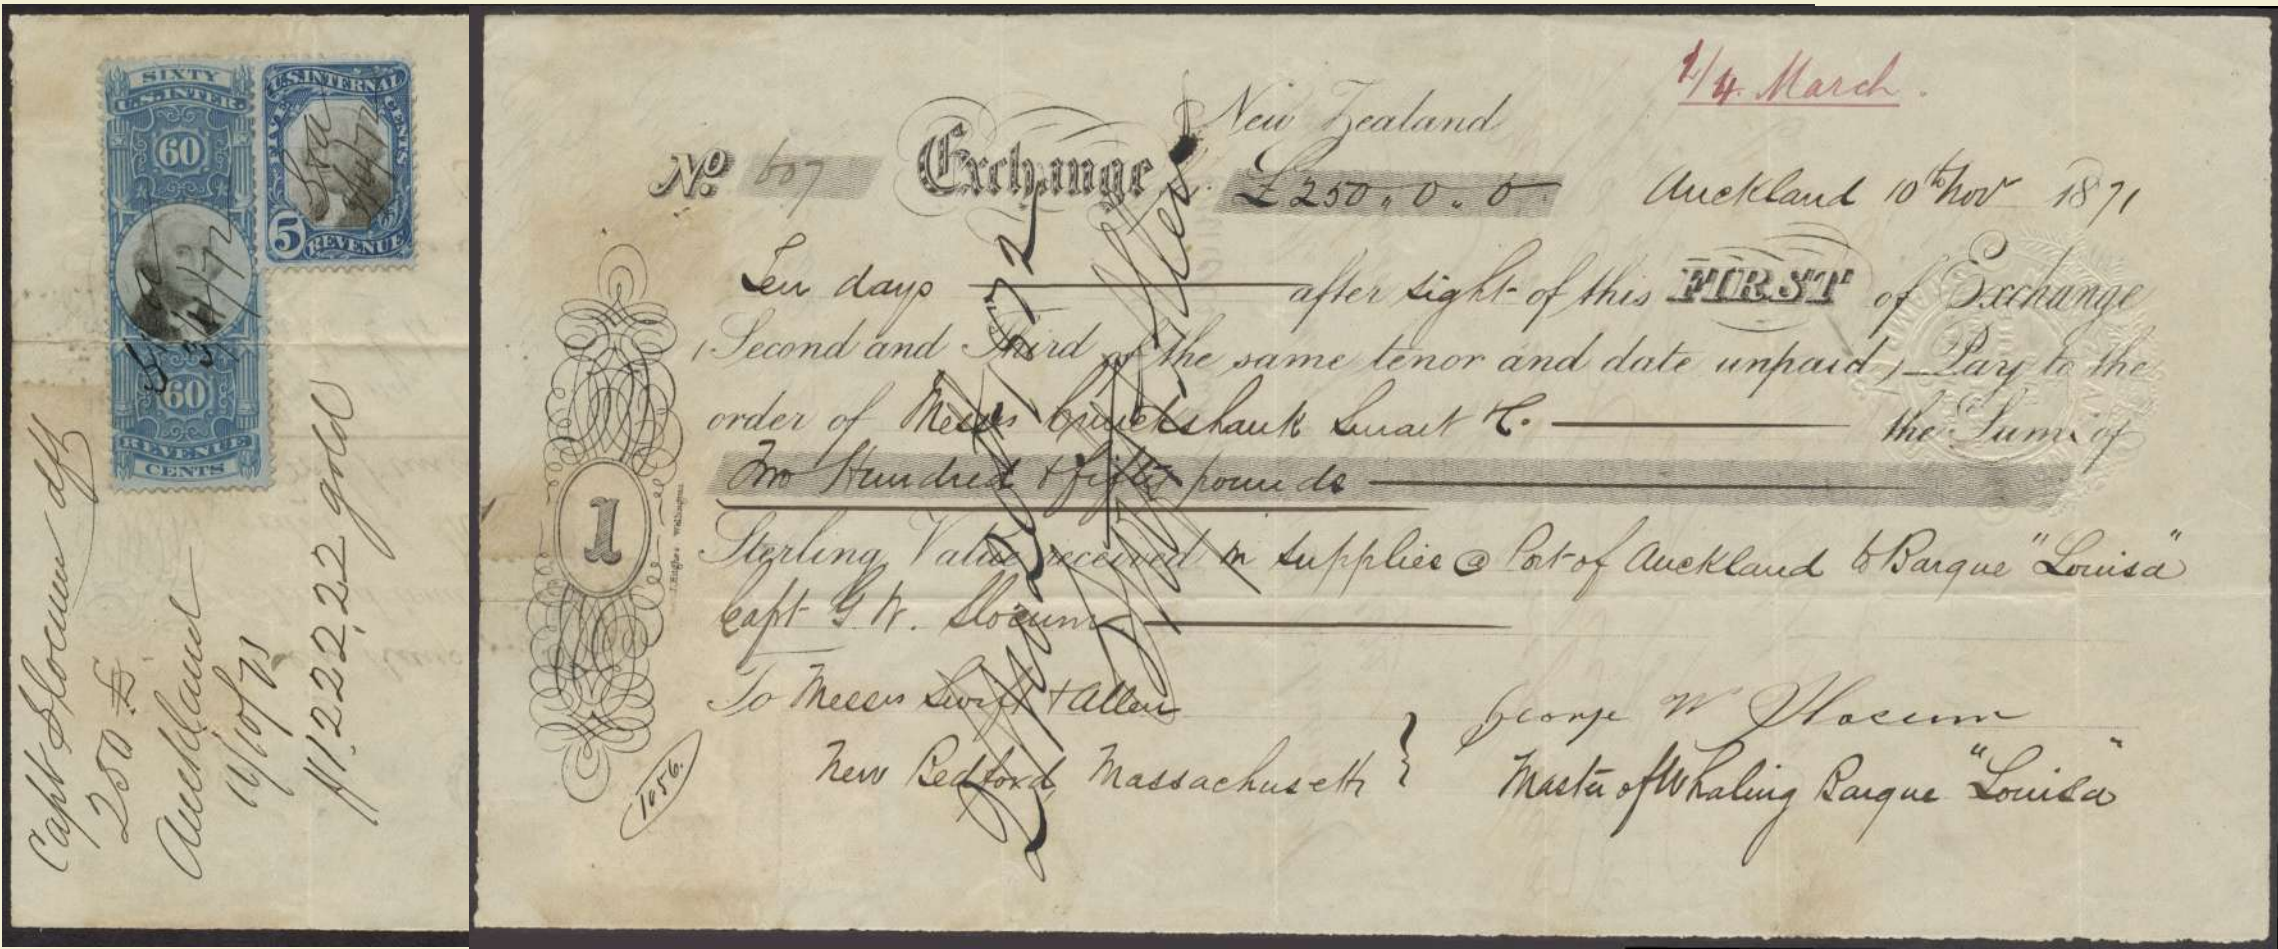 SIXTY
U.S. INTER.
60
60
REVENUE
CENTS
U.S. INTERNAL
FIVE CENTS
5
REVENUE
S & A
3/4/72
S & A
3/4/72
Capt Slocum dft
250 £
Auckland
10/71
$1222.22 gold
1/4. March.
New Zealand
No. 607 Exchange £250 " 0 " 0 Auckland 10th Nov 1871
Ten days after sight of this FIRST of Exchange
(Second and Third of the same tenor and date unpaid) Pay to the
order of Messrs Cruickshank Smart & Co. the Sum of
Two Hundred & fifty pounds
Sterling, Value received in supplies @ Port of Auckland to Barque "Louisa"
Capt G. W. Slocum
To Messrs Swift & Allen
New Bedford, Massachusetts
George W Slocum
Master of Whaling Barque "Louisa"
1
1056.
Swift & Allen